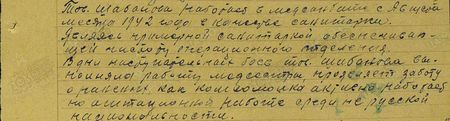 Тов. Шабанова работает в медсанбате с Августа
месяца 1942 года в качестве санитарки.
Являясь примерной санитаркой, обеспечиваю-
щей чистоту операционного отделения.
В дни наступательных боев тов. Шабанова вы-
полняла работу медсестры, проявляет заботу
о раненых как комсомолка активно работает
по агитационной работе среди не русской
национальности.